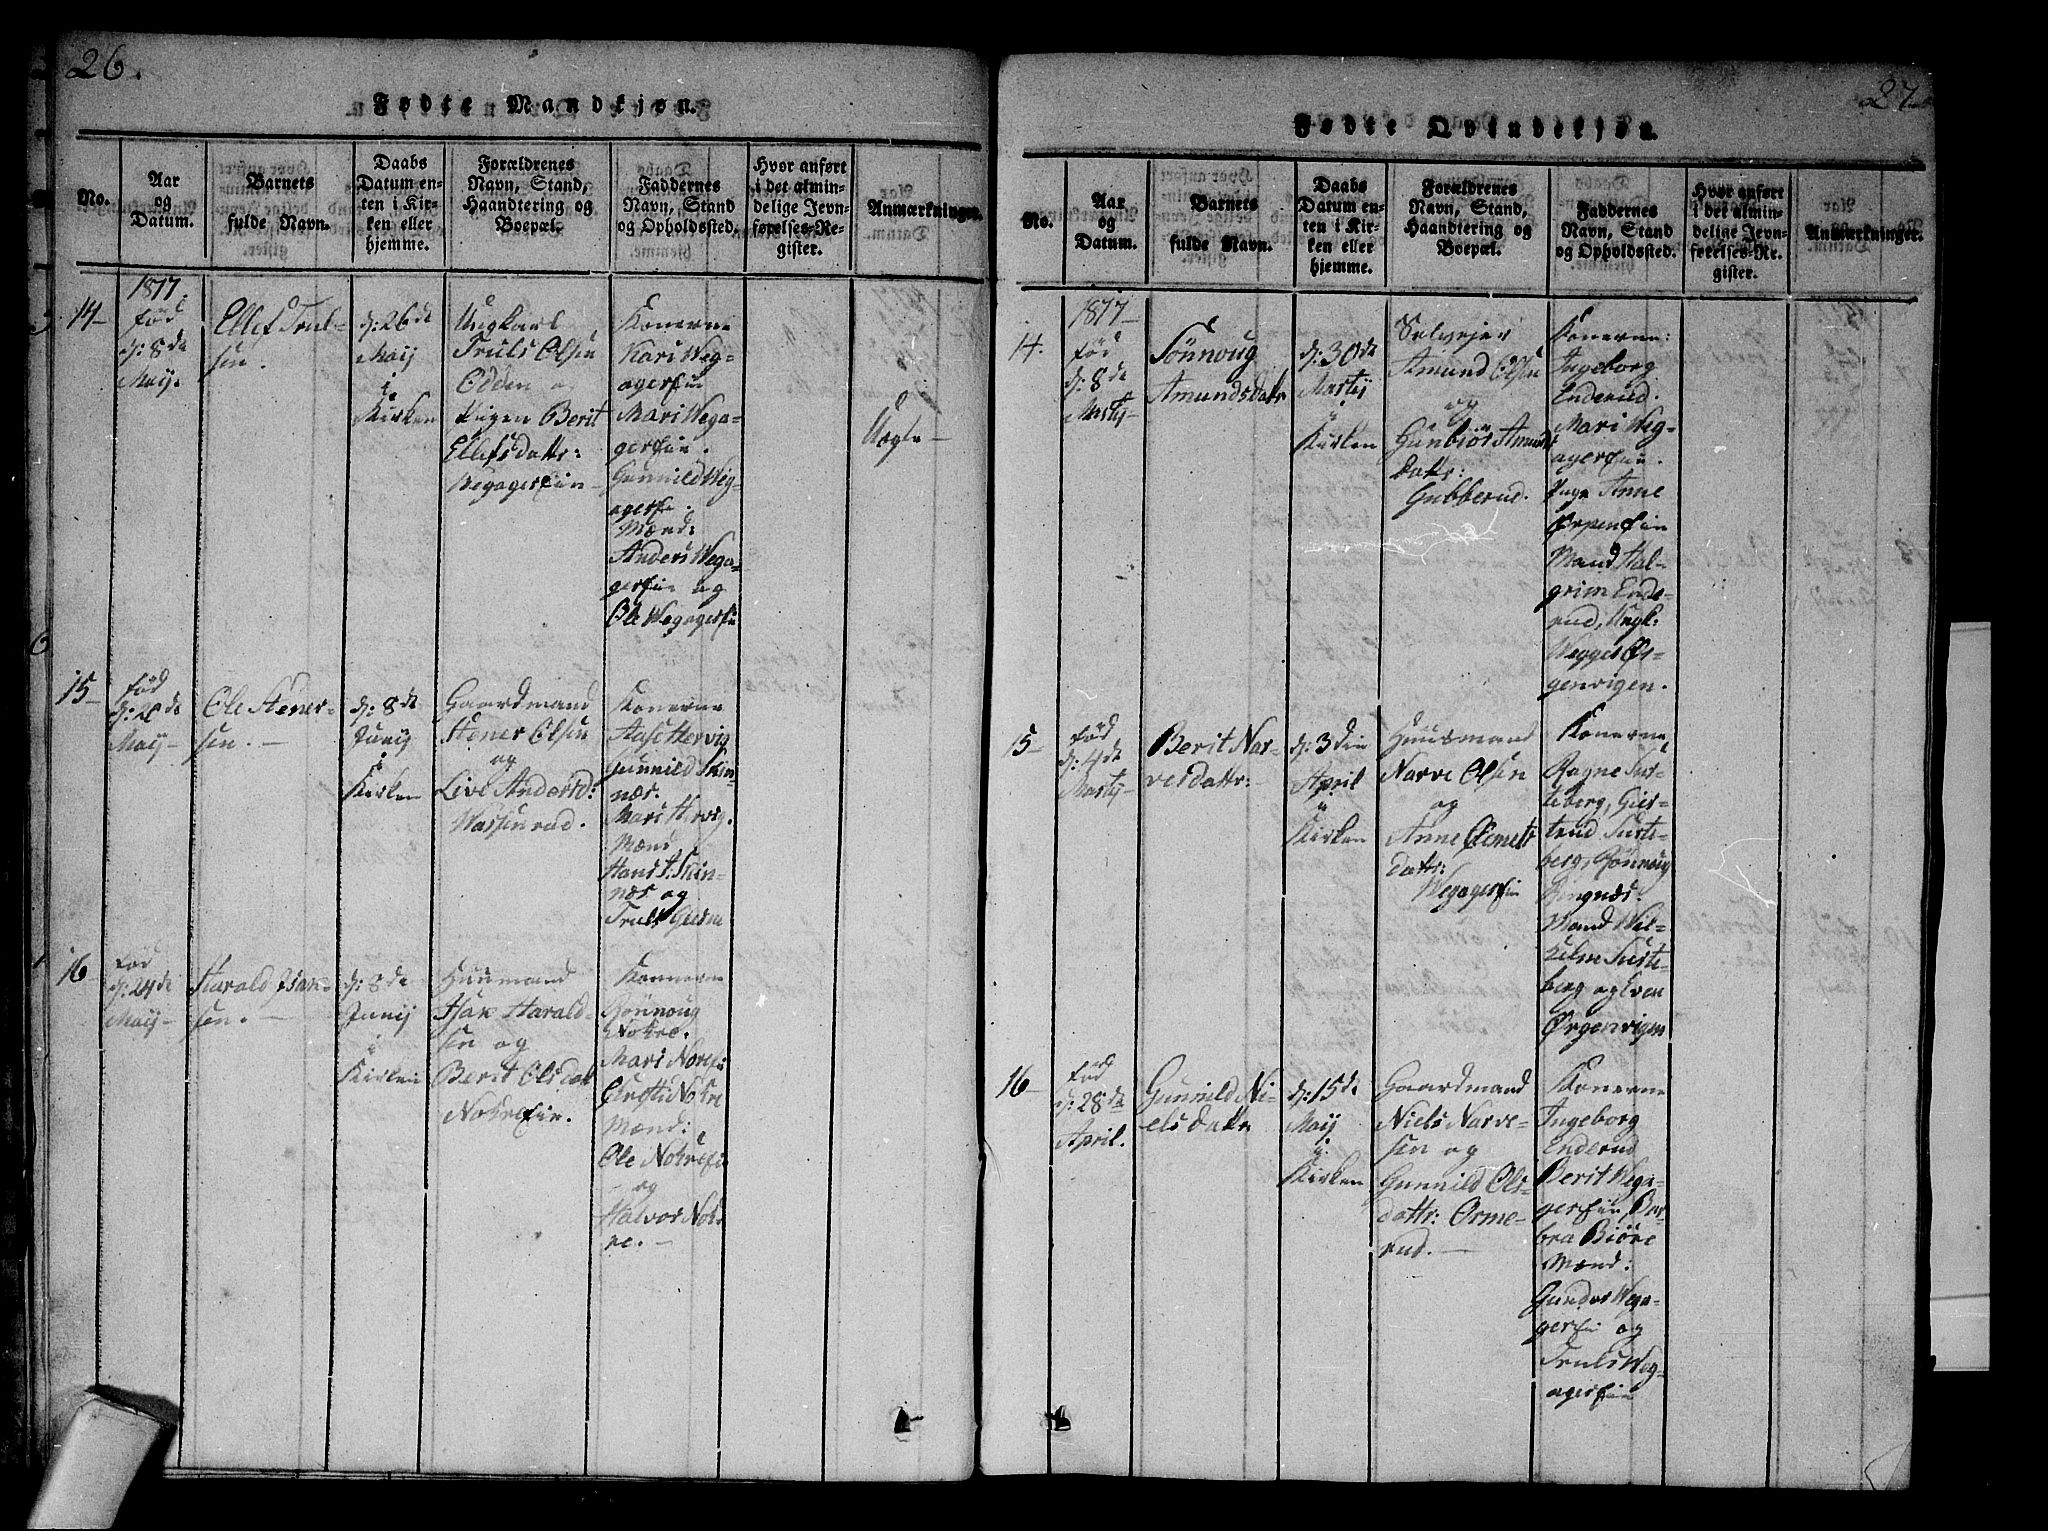 26.
Fødte Mandkjøn.
No.
Aar
og
Datum.
Barnets
fulde Navn.
Daabs
Datum en-
ten i Kir-
ken eller
hjemme.
Forældrenes
Navn, Stand,
Haandtering og
Boepæl.
Faddernes
Navn, Stand
og Opholdssted.
Hvor anført
i det almin-
delige Jevn-
førelses-Re-
gister.
Anmærkninger.
1817.
14
Fød
d: 8de
Maij.
Ellef Trul-
sen.
d: 26de
Maij
i
Kirken
Ungkarl
Truls Olsen
Odden og
Pigen Berit
Ellefsdattr:
Wegagerfin
Konerne
Kari Weg-
agerfin
Mari Wega-
gerfin.
Gunnild Weg-
agerf.
Mænd:
Anders Wega-
gerfin og
Ole Wegagerfin
Uægte
15
Fød
Maij
Ole Stener-
sen.
d: 8de
Junij
i
Kirken
Gaardmand
Stener Olsen
og
Live Andersd:
Konerne
Aase Hervig
Gunnild Skin-
næs.
Mari Hervig.
Mænd
Hans Skin-
næs og
Truls
16
Fød
d: 24de
Maij
Harald Isak-
sen.
d: 8de
Junij
i
Kirken
Huusmand
Isak Harald-
sen og
Berit Olsdatt
Nokrefin.
Konerne
Rønnoug
Nokre.
Mari Norefin
Nokre
Mænd:
Ole Nokrefin
og
Halvor Nok-
re.
27
Fødte Qvindekjøn.
No.
Aar
og
Datum.
Barnets
fulde Navn.
Daabs
Datum en-
ten i Kir-
ken eller
hjemme.
Forældrenes
Navn, Stand,
Haandtering og
Boepæl.
Faddernes
Navn, Stand
og Opholdssted.
Hvor anført
i det almin-
delige Jevn-
førelses-Re-
gister.
Anmærkninger.
1817
14.
Fød
d: 8de
Martij
Sønnoug
Amundsdattr
d: 30de
Martij
i
Kirken
Selvejer
Amund Olsen
og
Gunbiør Amunds
dattr:
Gubberud.
Konerne:
Ingeborg
Enderud.
Mari Weg-
agerfin.
Pige Anne
Mand Hal-
grim Ende-
rud, Ungk:
Wegger Ør-
genvigen.
15
Fød
d: 4de
Martij
Berit Nar-
vesdattr:
d: 3die
April
i
Kirken
Huusmand
Narve Olsen
og
Anne
dattr:
Wegagerfin
Konerne
Ragne Sus-
teberg, Gier-
trud Suste-
berg, Rønnoug
Ringnæs.
Mand Wil-
helm Suste-
berg og Even
Ørgenvigen
16
Fød
d: 28de
April.
Gunnild Ni-
elsdattr
d: 15de
Maij
i
Kirken
Gaardmand
Niels Narve-
sen og
Gunnild Ols-
dattr: Orme-
rud.
Konerne
Ingeborg
Enderud
Berit Wega-
gerfin, Bar-
bra Biøre
Mænd:
Gunder Wega-
gerfin og
Truls Weg-
agerfin